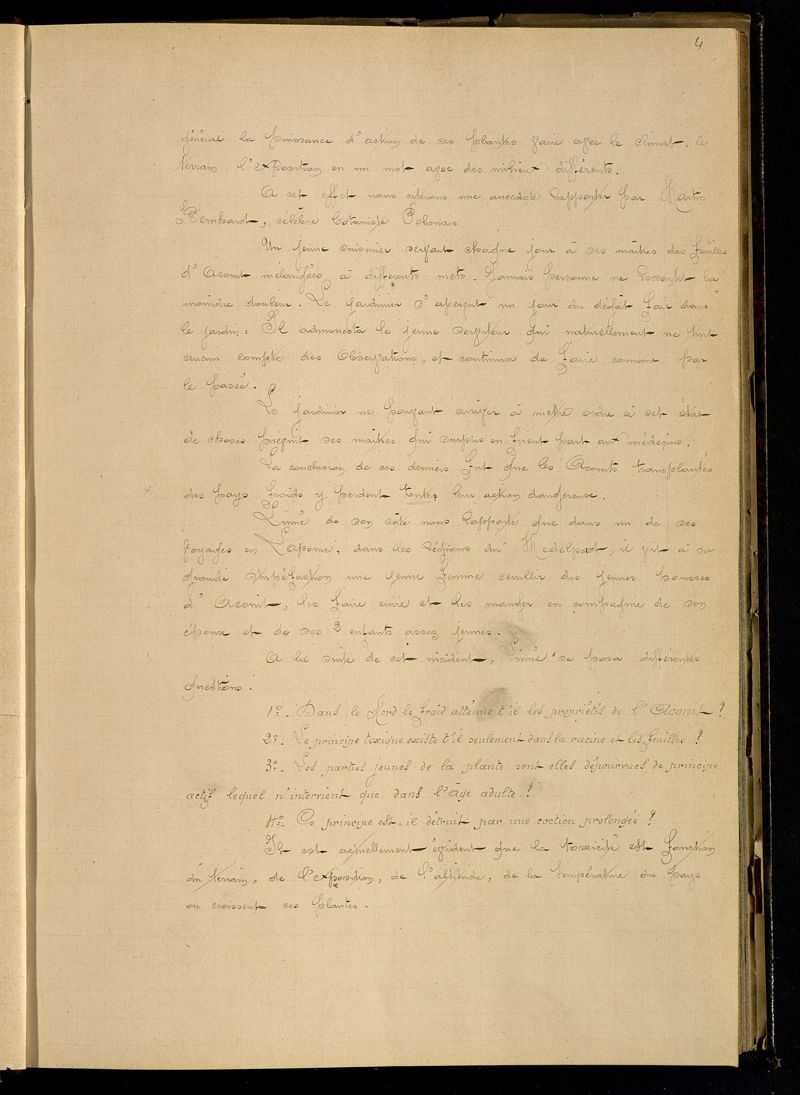 4
général la puissance d'action de ces plantes varie avec le climat, le
terrain, l'exposition en un mot avec des milieux différents.
A cet effet nous citerons une anecdote rapportée par Martin
Bernhard, célèbre botaniste Polonais
Un jeune cuisinier servait chaque jour à ses maîtres des feuilles
d'Aconit mélangées à différents mets. Jamais personne ne ressentit la
moindre douleur. Le jardinier s'aperçut un jour du dégât fait dans
le jardin; Il admonesta le jeune serviteur qui naturellement ne tint
aucun compte des observations, et continua de faire comme par
le passé.
Le jardinier ne pouvant arriver à mettre ordre à cet état
de choses prévint ses maîtres qui surpris en firent part aux médecins.
La conclusion de ces derniers fut que les Aconits transplantés
x des pays froids y perdent toute leur action dangereuse.
Linné de son côté nous rapporte que dans un de ses
voyages en Laponie, dans les régions du Medelpad, il vit à sa
grande stupéfaction une jeune femme cueillir des jeunes pousses
d'Aconit, les faire cuire et les manger en compagnie de son
époux et de ses 2 enfants assez jeunes.
A la suite de cet incident, Linné se posa différentes
questions:
1º- Dans le Nord le froid atténue t'il les propriétés de l'Aconit?
2º- Le principe toxique existe t'il seulement dans la racine et les feuilles?
3º- Les parties jeunes de la plante sont elles dépourvues de principe
actif lequel n'intervient que dans l'âge adulte?
4º- Ce principe est-il détruit par une coction prolongée?
Il est actuellement évident que la toxicité est fonction
du terrain, de l'exposition, de l'altitude, de la température du pays
ou croissent ces plantes.